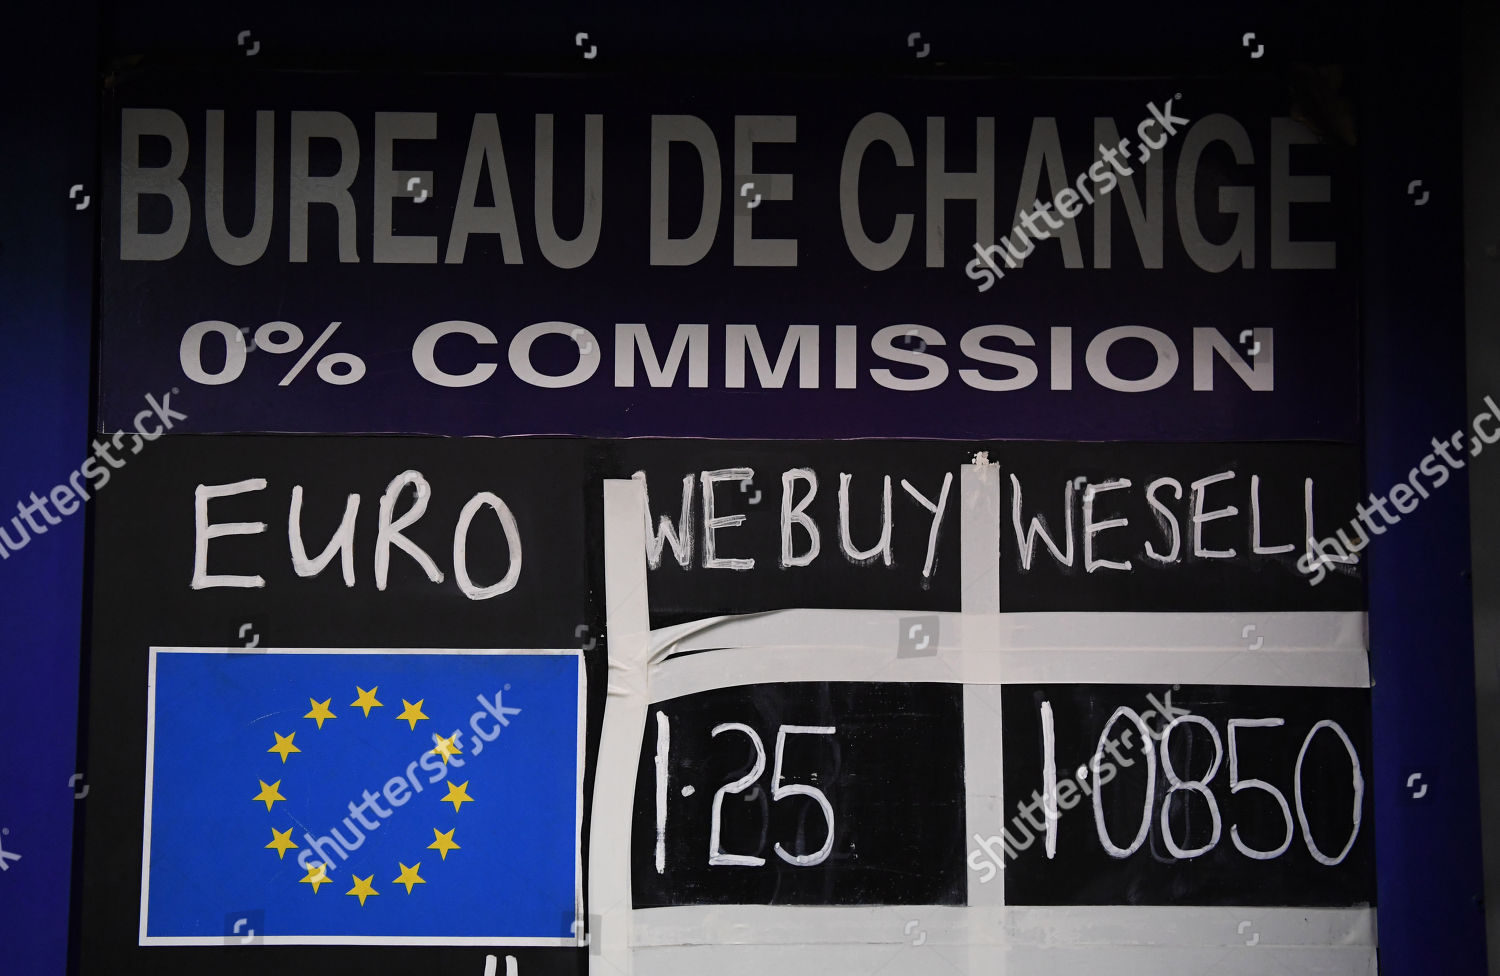 BUREAU DE CHANGE
0% COMMISSION
EURO WE BUY WE SELL
1.25 1.0850
shutterstock
shutterstock
shutterstock
shutterstock
shutterstock
shutterstock